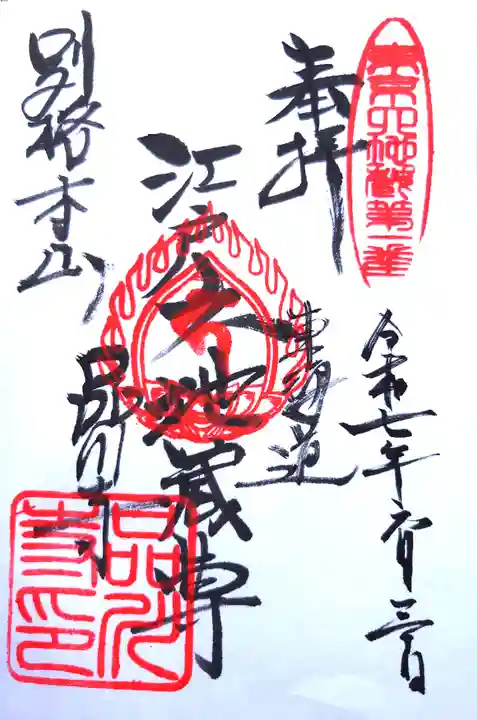 六地蔵第一番
奉拝
令和七年六月三日
東海道
江戸六地蔵尊
別格本山
品川寺
品川寺印